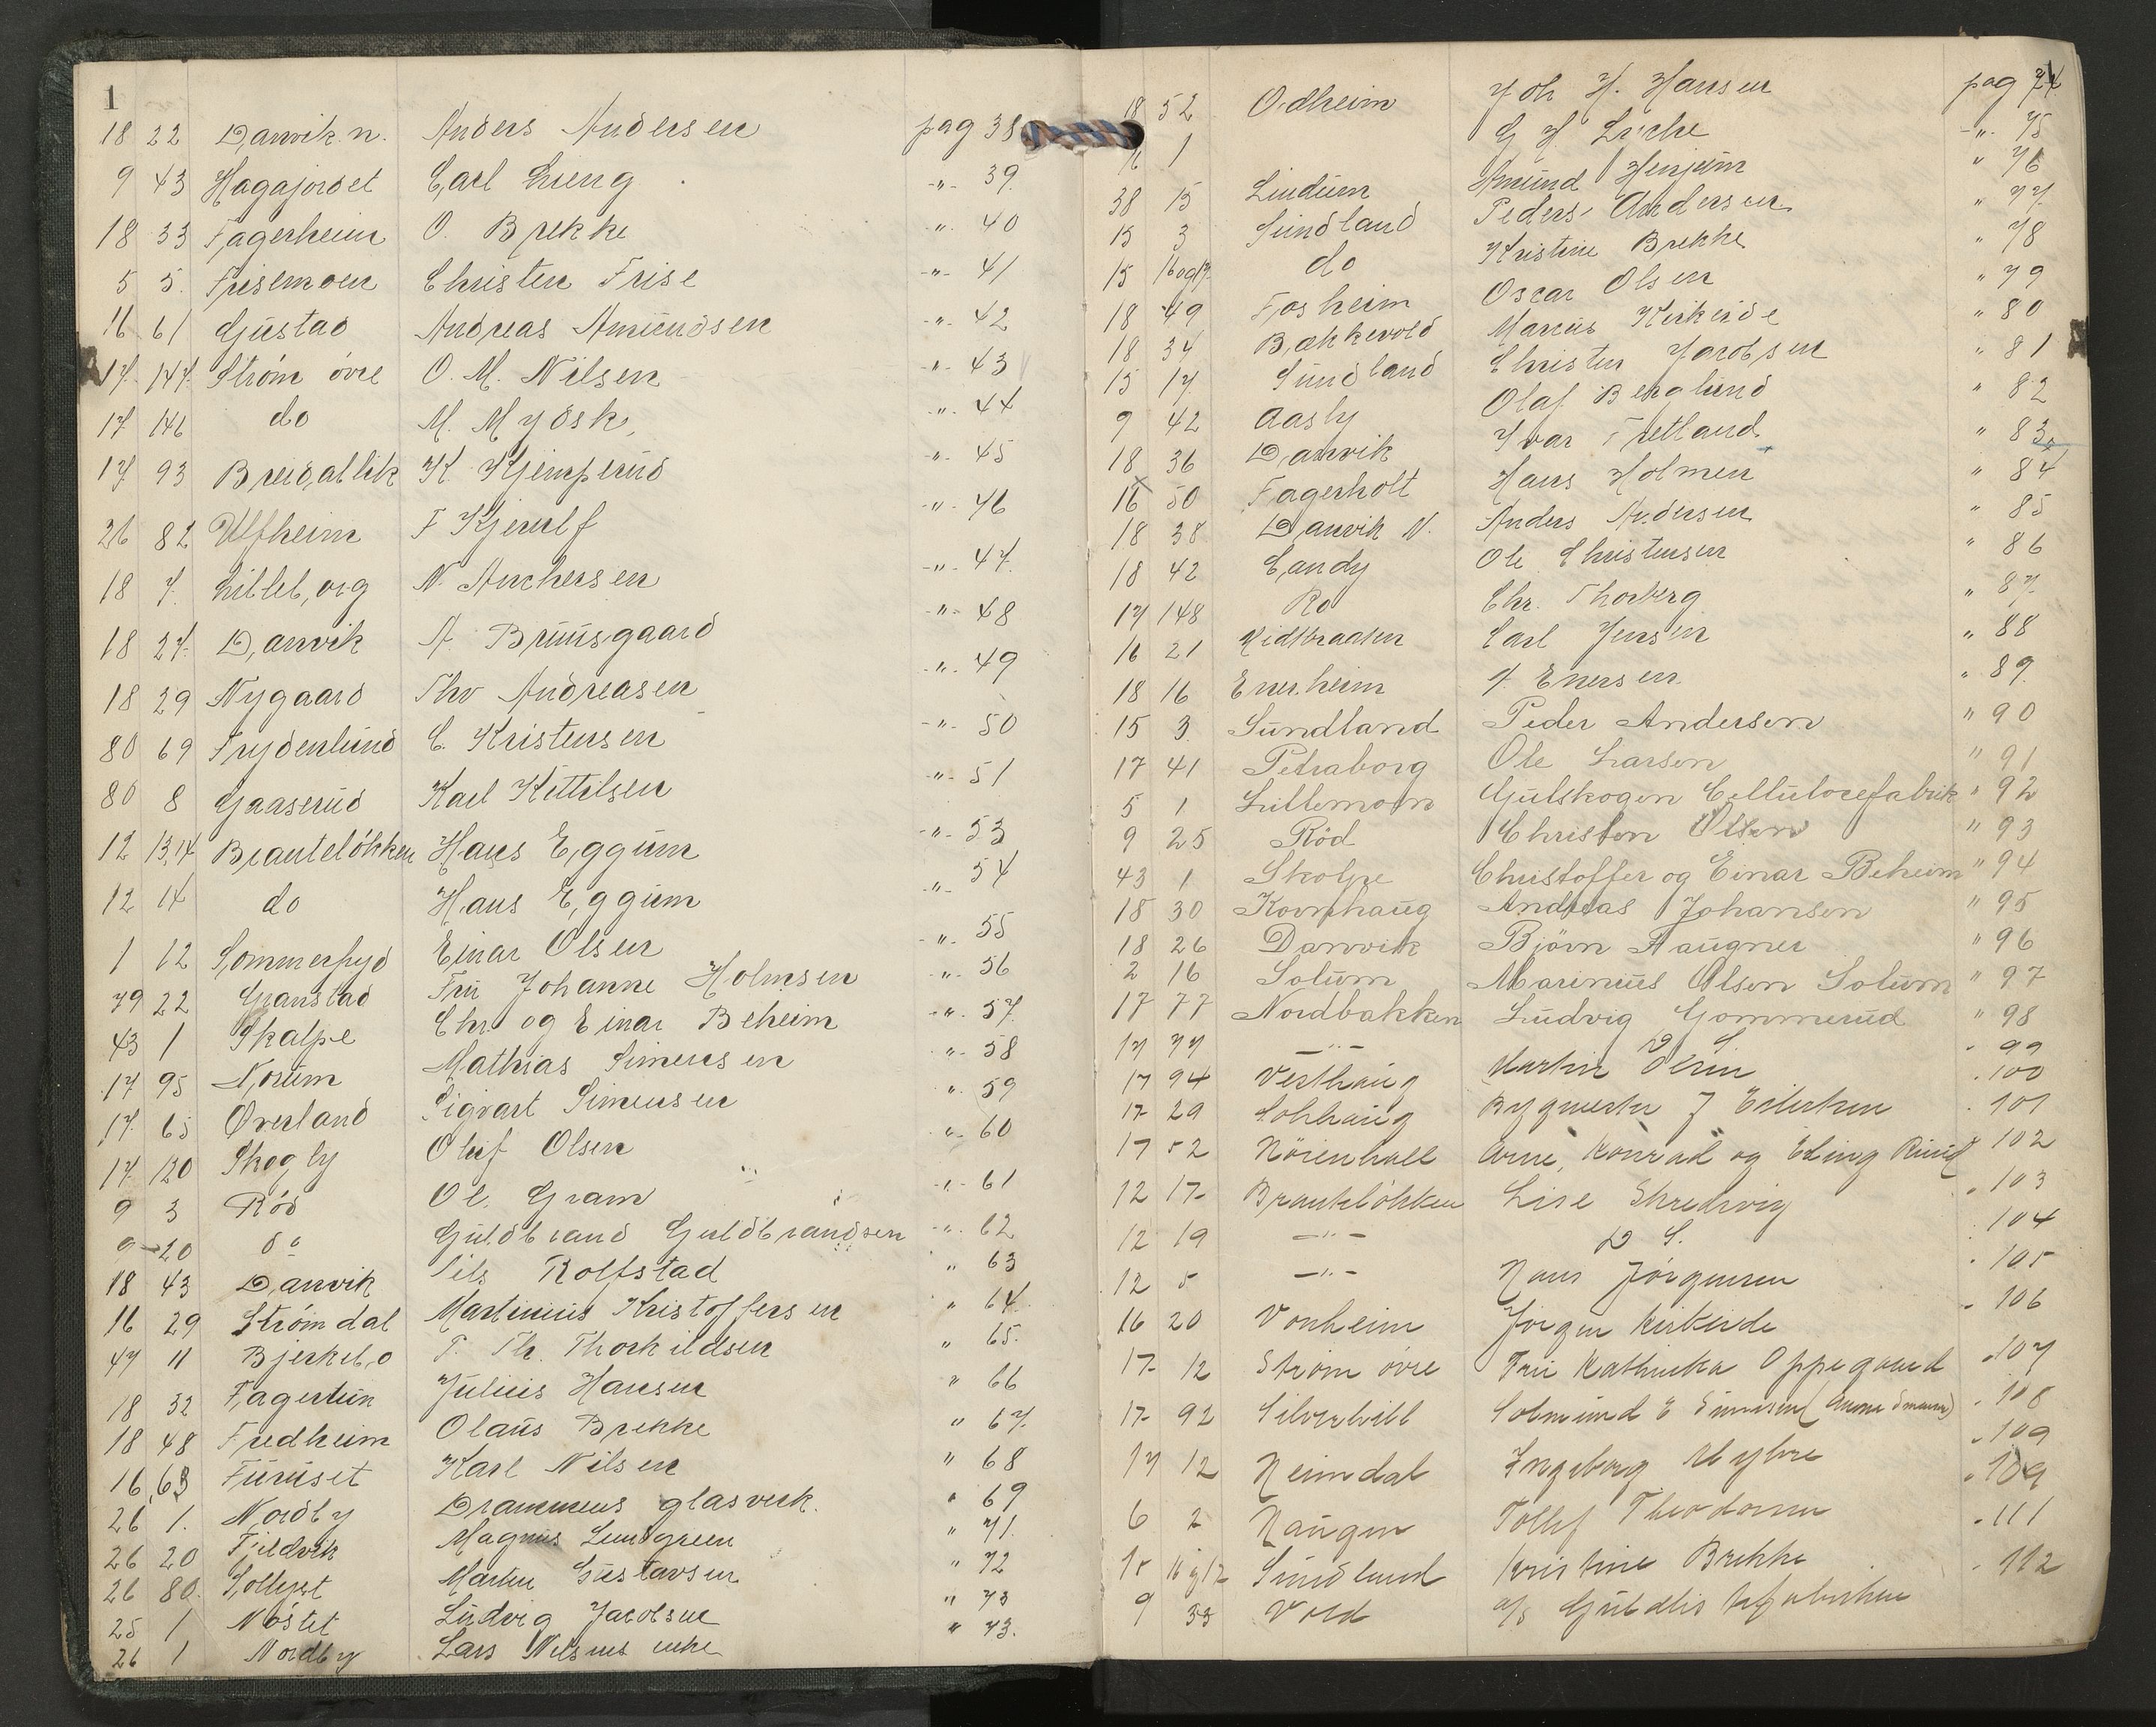 1
18 22 Danvik n. Anders Andersen pag 38
9 43 Hagajordet Carl Lieng -"- 39
18 33 Fagerheim O. Brekke -"- 40
5 5 Frisemoen Christen Frise -"- 41
16 61 Gustad Andreas Amundsen -"- 42
17 147 Strøm övre O. M. Nilsen -"- 43
17 146 do M. Mydsk -"- 44
17 93 Breidablik K. Kjemperud -"- 45
26 82 Ulfheim F Kjerulf -"- 46
18 7 Lilleborg N. Anchersen -"- 47
18 27 Danvik A. Bruusgaard -"- 48
18 29 Nygaard Tho Andreasen -"- 49
80 69 Frydenlund C. Kristensen -"- 50
80 8 Gaaserud Karl Kittilsen -"- 51
12 13,14 Brantelökken Hans Eggum -"- 53
12 14 do Hans Eggum -"- 54
1 12 Sommerfryd Einar Olsen -"- 55
79 22 Granstad Fru Johanne Holmsen -"- 56
43 1 Skalpe Chr. og Einar Beheim -"- 57
17 95 Norum Mathias Simensen -"- 58
17 65 Øverland Sigvart Simensen -"- 59
17 120 Skogly Oluf Olsen -"- 60
9 3 Röd Ol. Gram -"- 61
9 20 do Guldbrand Guldbrandsen -"- 62
18 43 Danvik Nils Rolfstad " 63
16 29 Strømdal Martinius Kristoffersen " 64
47 11 Bjerkebo T. Th. Thorkildsen " 65
18 32 Fagertun Julius Hansen " 66
18 48 Fredheim Olaus Brekke " 67
16 63 Furuset Karl Nilsen " 68
26 1. Nordby Drammens glasverk. " 69
26 20 Fieldvik Magnus Lundgreen " 71.
26 80. Solbyst Martin Gustavsen " 72
25 1 Nöstet Ludvig Jacobsen " 73
26 1 Nordby Lars Nilsens enke " 73.
18 52 Odheim Joh H. Hansen pag 74
16 1 G H. Lyche -"- 75
38 15 Lindum Amund Henjum " 76
15 3 Sundland Peders Andersen " 77
15 16 og 17 do Kristine Brekke " 78
18 49 Fosheim Oscar Olsen " 79
18 34 Bækkevold Marius Kirkeide " 80
15 17 Sundland Christen Jacobsen " 81
9 42 Aasly Olaf Berglund " 82
18 36 Danvik Ivar Fretland " 83
16 50 Fagerholt Hans Holmen " 84
18 38 Danvik N. Anders Andersen " 85
18 42 Candy Ole Christensen " 86
17 148 Ro Chr. Thorberg " 87
16 21 Midtbraaten Carl Jensen " 88
18 16 Enerheim J. Enersen " 89
15 3 Sundland Peder Andersen " 90
17 41 Petraborg Ole Larsen " 91
5 1 Lillemoen Gulskogen Cellulosefabrik " 92
9 25 Röd Christen Olsen " 93
43 1 Skolpe Christoffer og Einar Beheim " 94
18 30 Kornhaug Andreas Johansen " 95
18 26 Danvik Björn Haugner " 96
2 16 Solum Marinius Olsen Solum " 97
17 77 Nordbakken Ludvig Gommerud " 98
17 77 -"- D S. " 99
17 94 Vesthaug Martin Olsen 100
17 29 Solhaug Bygmester J Eilertsen 101
17 52 Nörenhall Arne, Konrad og Erling Ruud 102
12 17 Brantelökken Lise Skredsvig 103
12 19 -"- D S. 104
12 5 -"- Hans Jörgensen 105
16 20 Vonheim Jörgen Kirkeide 106
17 12 Ström övre Fru Kathinka Oppegaard 107
17 92 Silverhvill Solmund E Simensen 108
17 12 Heimdal Ingeborg Myhre 109
6 2 Haugen Tollef Theodorsen 109
15 16 og 17 Sundland Kristine Brekke 111
9 33 Vold 112